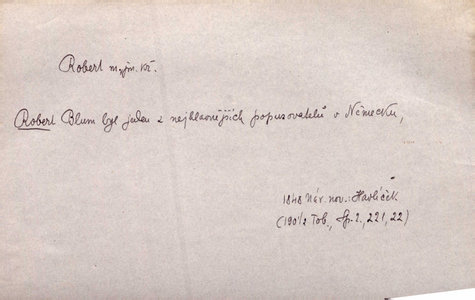 Robert m. jm. kř.
Robert Blum byl jeden z nejhlavnějších popuzovatelů v Německu,
1848 Nár. nov.: Havlíček
(1901/2 Tob., Sp. 2, 221, 22)